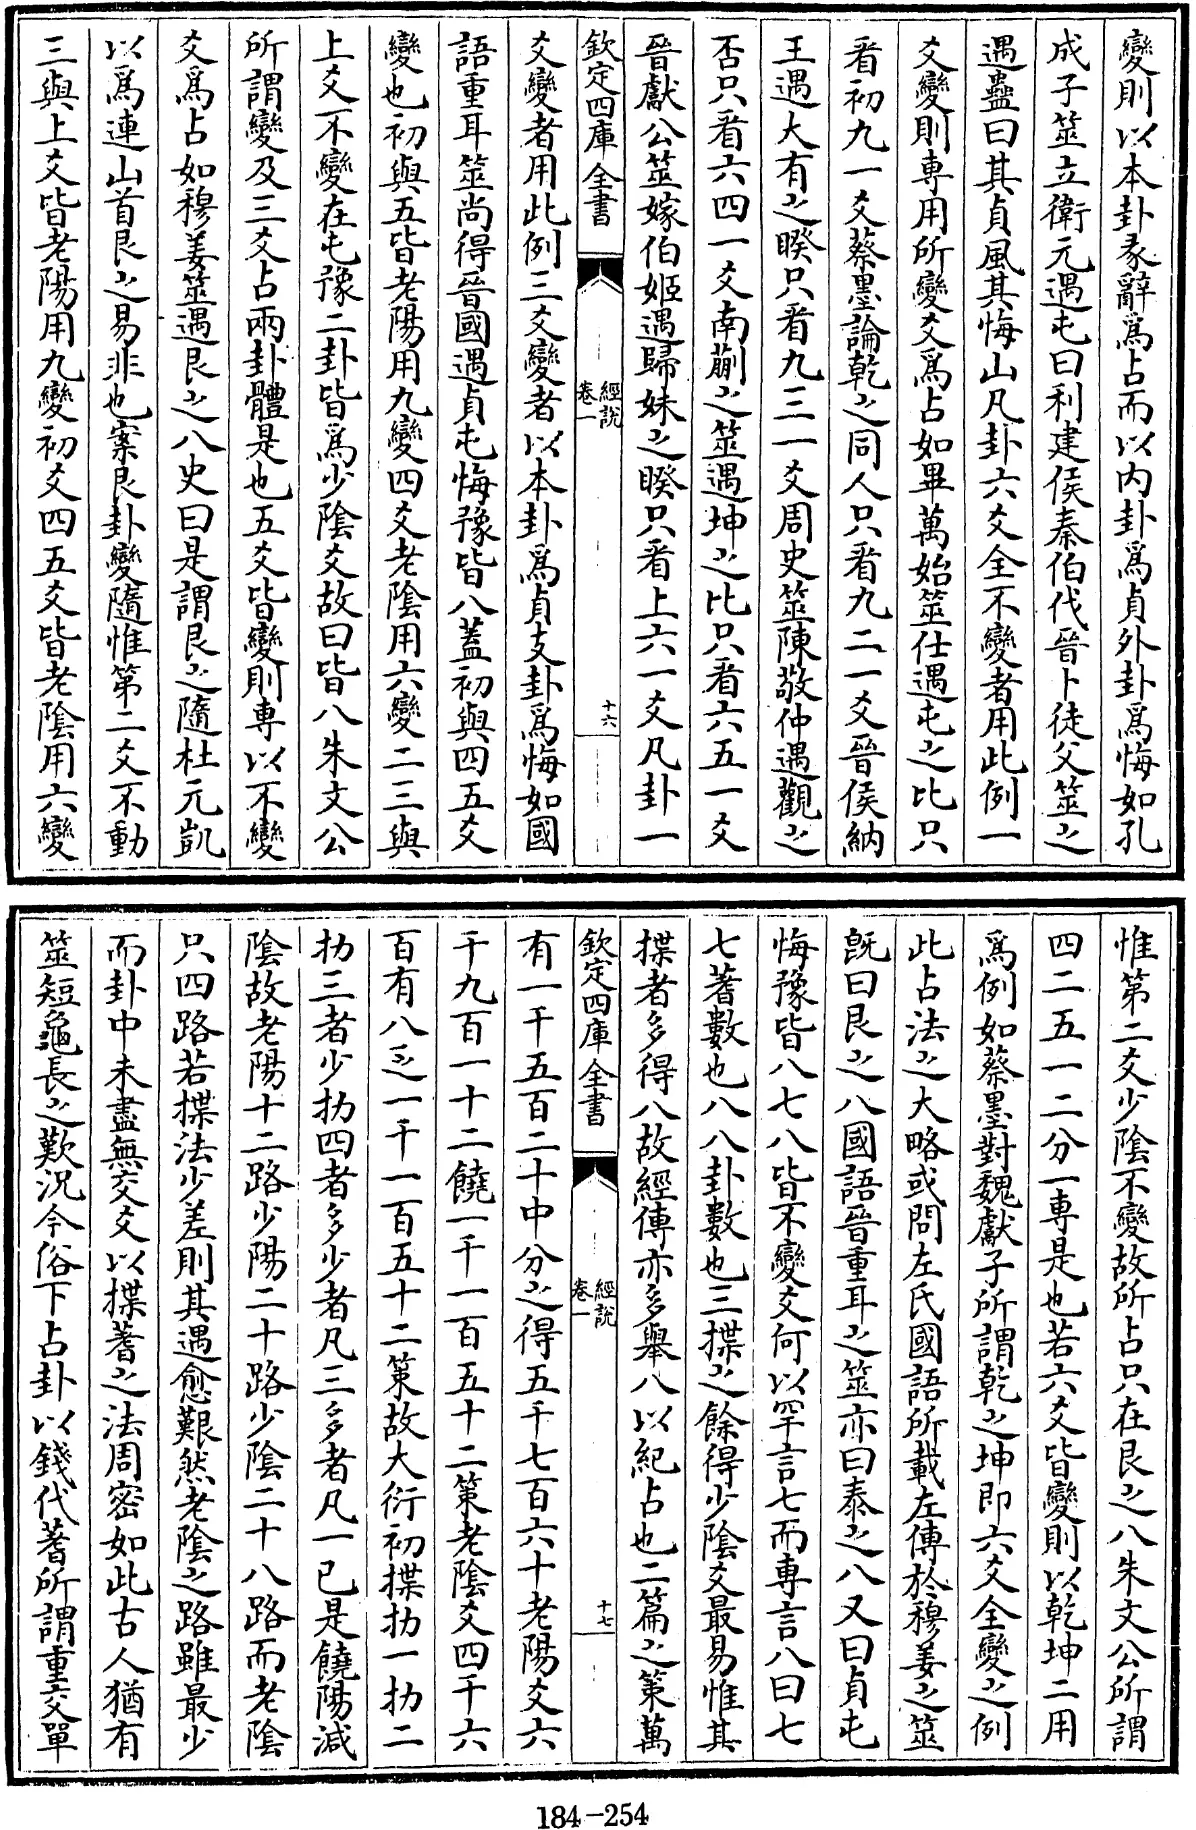 變則以本卦彖辭爲占而以内卦爲貞外卦爲悔如孔
成子筮立衛元遇屯曰利建侯秦伯伐晉卜徒父筮之
遇蠱曰其貞風其悔山凡卦六爻全不變者用此例一
爻變則専用所變爻爲占如畢萬始筮仕遇屯之比只
看初九一爻蔡墨論乾之同人只看九二一爻晉侯納
王遇大有之睽只看九三一爻周史筮陳敬仲遇觀之
否只看六四一爻南蒯之筮遇坤之比只看六五一爻
晉獻公筮嫁伯姬遇歸妹之睽只看上六一爻凡卦一
欽定四庫全書
經說
卷一
十六
爻變者用此例三爻變者以本卦爲貞支卦爲悔如國
語重耳筮尚得晉國遇貞屯悔豫皆八蓋初與四五爻
變也初與五皆老陽用九變四爻老陰用六變二三與
上爻不變在屯豫二卦皆爲少陰爻故曰皆八朱文公
所謂變及三爻占兩卦體是也五爻皆變則専以不變
爻爲占如穆姜筮遇艮之八史曰是謂艮之隨杜元凱
以爲連山首艮之易非也案艮卦變隨惟第二爻不動
三與上爻皆老陽用九變初爻四五爻皆老陰用六變
惟第二爻少陰不變故所占只在艮之八朱文公所謂
四二五一二分一専是也若六爻皆變則以乾坤二用
爲例如蔡墨對魏獻子所謂乾之坤即六爻全變之例
此占法之大略或問左氏國語所載左傳於穆姜之筮
旣曰艮之八國語晉重耳之筮亦曰泰之八又曰貞屯
悔豫皆八七八皆不變爻何以罕言七而専言八曰七
七蓍數也八八卦數也三揲之餘得少陰爻最易惟其
揲者多得八故經傳亦多舉八以紀占也二篇之策萬
欽定四庫全書
經說
卷一
十七
有一千五百二十中分之得五千七百六十老陽爻六
千九百一十二饒一千一百五十二策老陰爻四千六
百有八乏一千一百五十二策故大衍初揲扐一扐二
扐三者少扐四者多少者凡三多者凡一已是饒陽減
陰故老陽十二路少陽二十路少陰二十八路而老陰
只四路若揲法少差則其遇愈艱然老陰之路雖最少
而卦中未盡無交爻以揲蓍之法周密如此古人猶有
筮短龜長之歎況今俗下占卦以錢代蓍所謂重交單
184-254